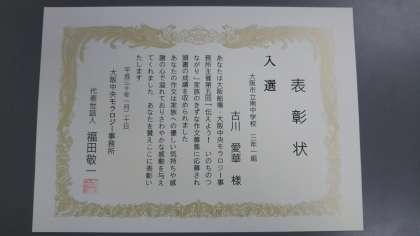 表彰状
入選
大阪市立南中学校 二年一組
古川 愛華 様
あなたは大阪船場・大阪中央モラロジー事
務所主催第五回「伝えよう！いのちのつ
ながり」家族のきずな作文募集に応募され
頭書の成績を収められました
あなたの作文は家族への優しい気持ちや感
謝の心で溢れておりさわやかな感動を与え
てくれました あなたを讃えここに表彰い
たします
大阪中央モラロジー事務所
代表世話人 福田敬一